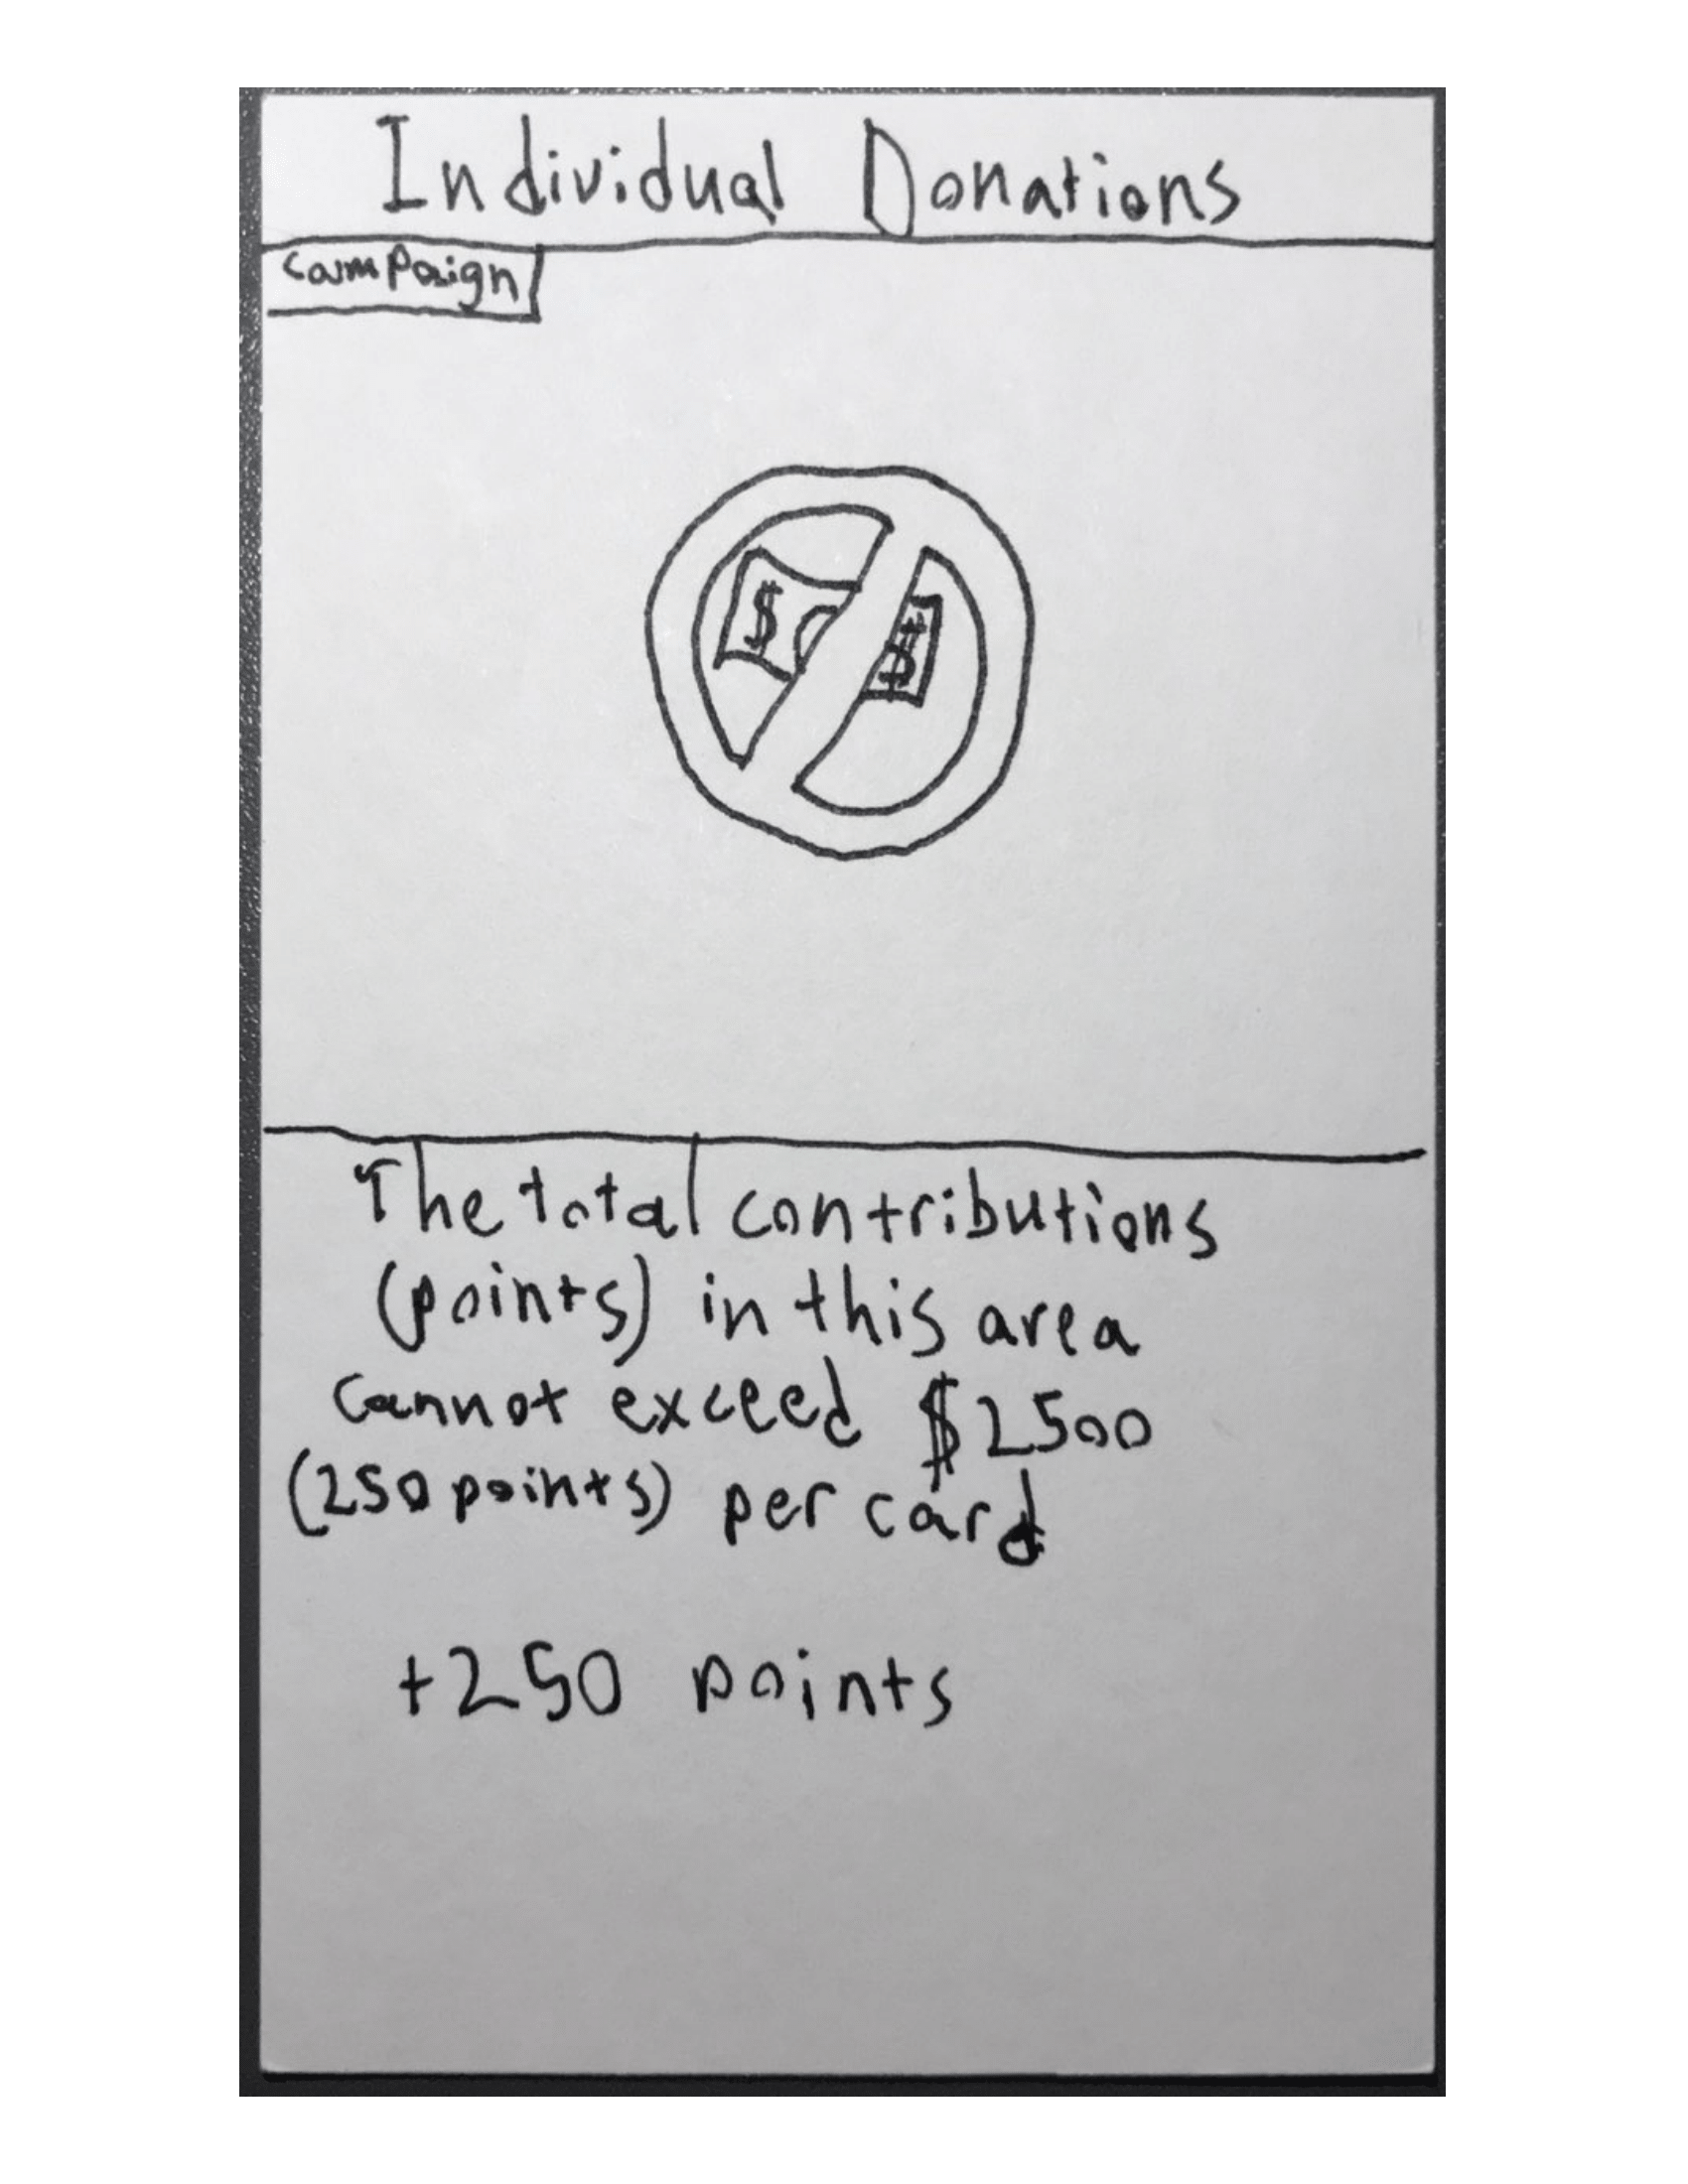 Individual Donations
campaign
$ $
The total contributions
(points) in this area
cannot exceed $2500
(250 points) per card
+250 points